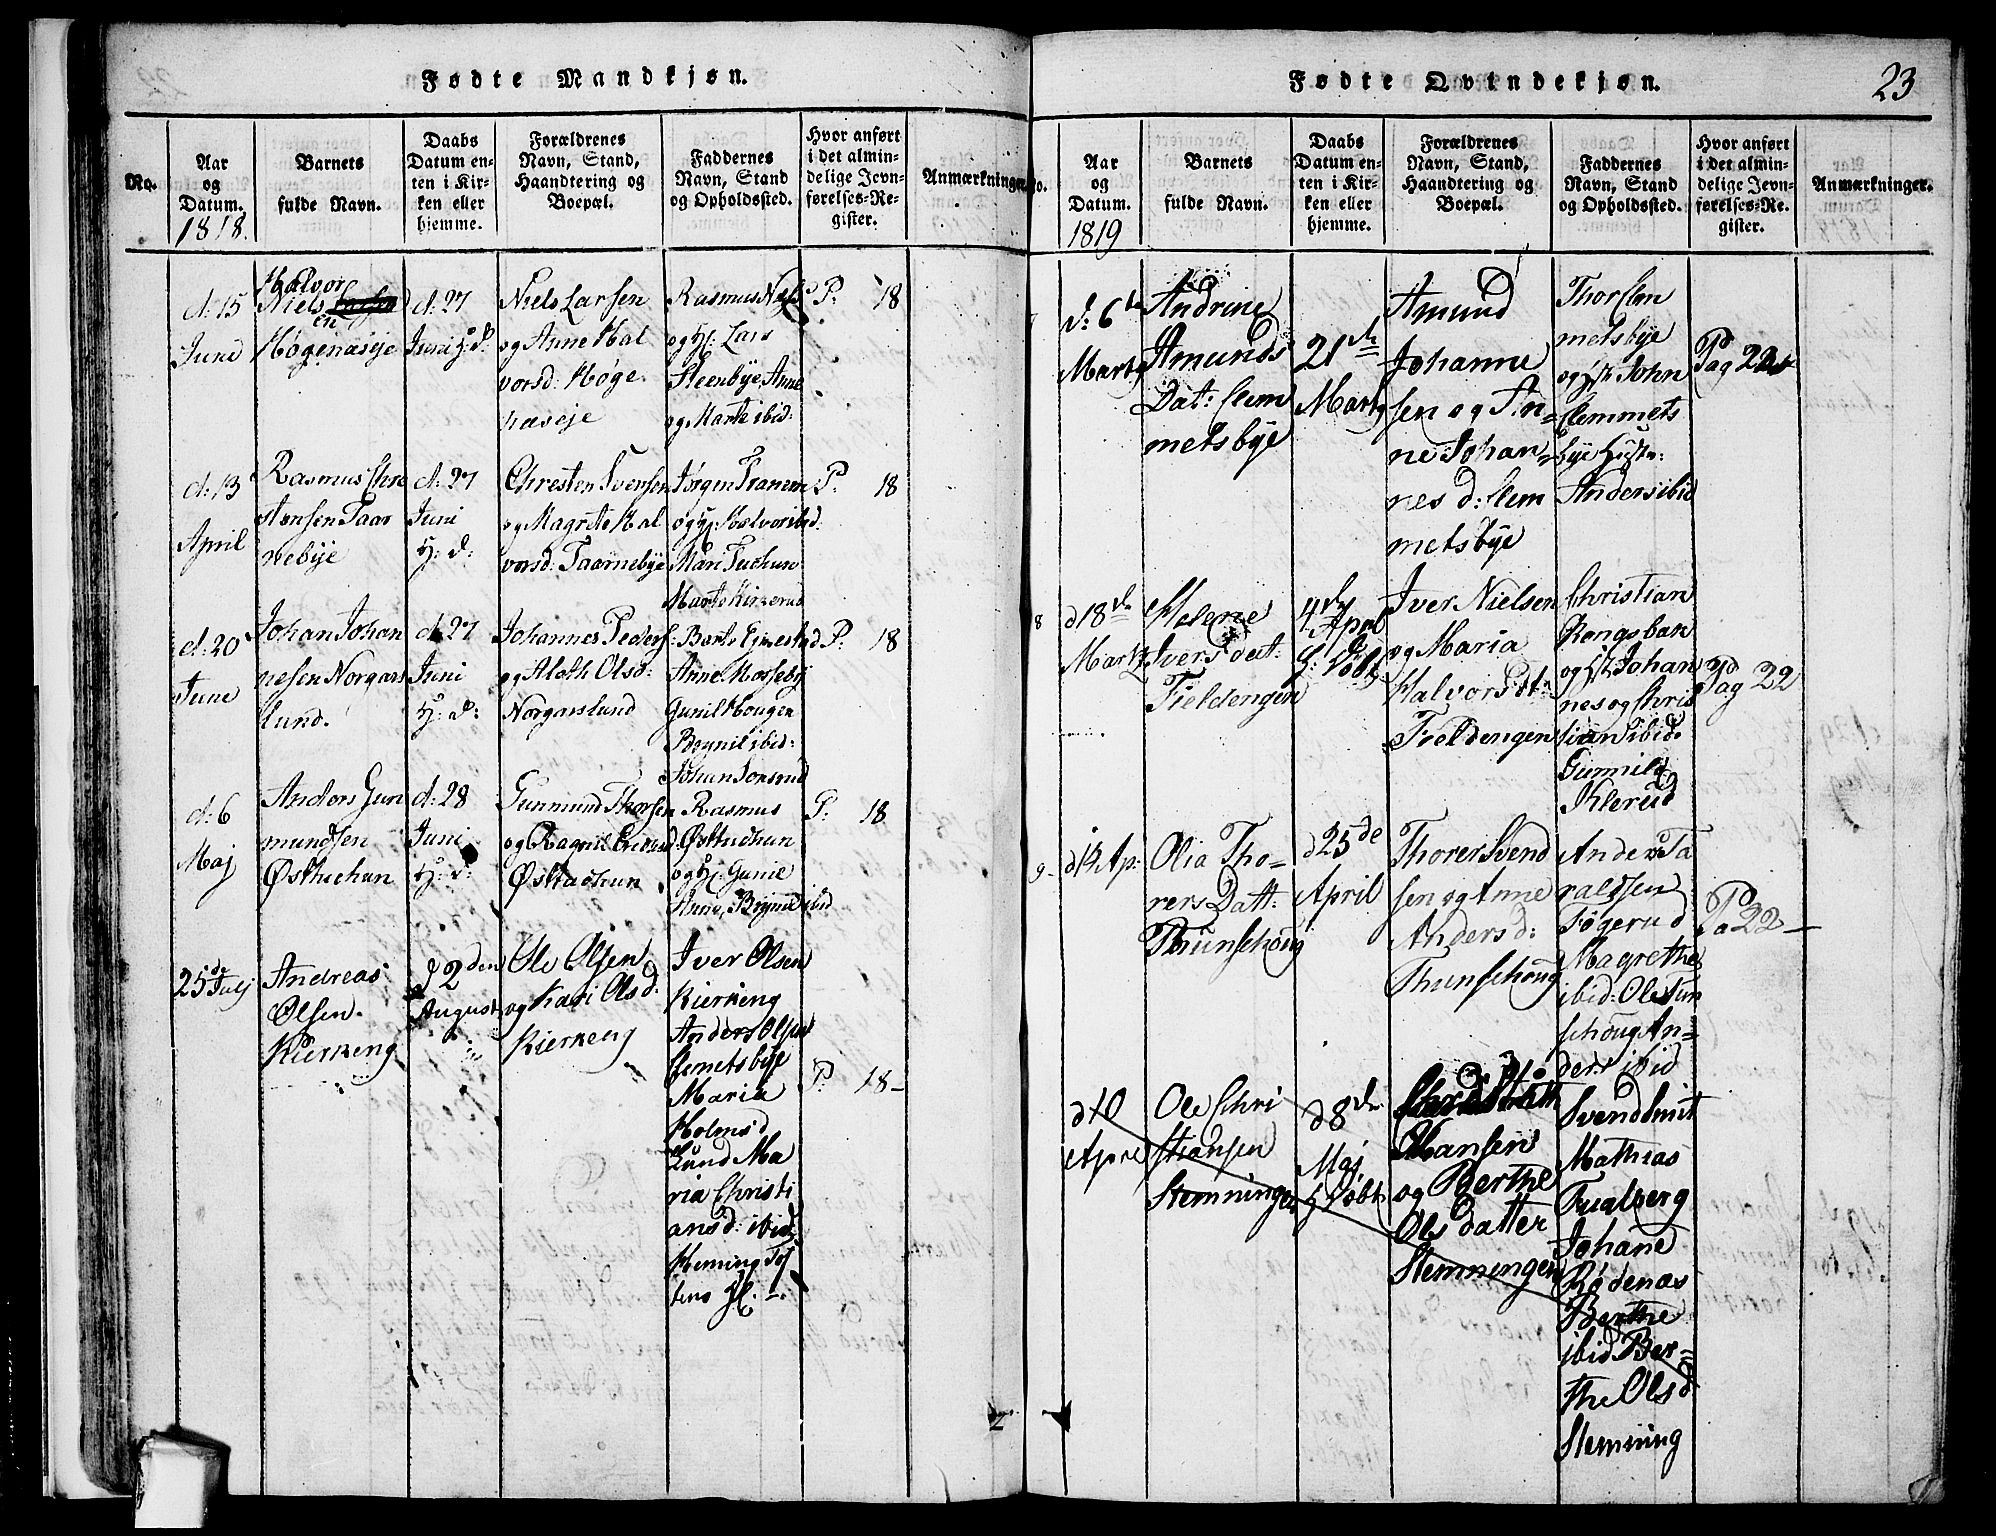 Fødte Mandkjøn.
No.
Aar
og
Datum.
1818.
Barnets
fulde Navn.
Daabs
Datum en-
ten i Kir-
ken eller
hjemme.
Forældrenes
Navn, Stand,
Haandtering og
Boepæl.
Faddernes
Navn, Stand
og Opholdssted.
Hvor anført
i det almin-
delige Jevn-
førelses-Re-
gister.
Anmærkninger.
d: 15
June
Halvor
Niels
en
Høgenæseje
d: 27
Juni H: d:
Niels Larsen
og Anne Hal
vorsd: Høge
næseje
Rasmus
og Lars
Steenbye Anne
og Marte ibid:
P. 18
d: 13
April
Rasmus Chre
stensen Taar
nebye
d: 27
Juni
H: d:
Chresten Svensen
og Magrete Hal
vorsd: Taarnebye
Jørgen Tranem
og Halvor ibid:
Mari Tuchun
Marte Kirkerud
P. 18
d: 20
June
Johan Johan
nesen Norgars
lund.
d: 27
Juni
H: d:
Johannes Peders:
og Aleth Olsd:
Norgarslund
Anne Mosseby
Gunil Hougen
ibid:
Johan
P. 18
d: 6
Maj
Anders Gun
mundsen
Østtuchun
d: 28
Juni
H: d:
Gunmund Thorsen
og Ragnil
Østtuchun
Rasmus
Østtuchun
og Gunil
Anne, ibid
P. 18
25de Julj
Andreas
Olsen
Kierkeng
d 2den
August
Ole Olsen
og Kari Olsd:
Kierkeng
Iver Olsen
Kierkeng
Anders Olsen
Clemetsbye
Maria
Holms d
Lund Ma
ria Christi
ansd: ibid
Henning
P. 18-
2
Fødte Qvindekjøn.
23
No.
Aar
og
Datum.
1819
Barnets
fulde Navn.
Daabs
Datum en-
ten i Kir-
ken eller
hjemme.
Forældrenes
Navn, Stand,
Haandtering og
Boepæl.
Faddernes
Navn, Stand
og Opholdssted.
Hvor anført
i det almin-
delige Jevn-
førelses-Re-
gister.
Anmærkninger.
7
d: 6te
Marty
Andrine
Amunds
Dat: Clem
metsbye
21de
Marty
Amund
Johanne
sen og An=
ne Johan=
nes d: Clem
metsbye
Thor Clem
metsbye
og John
Clemmets
bye
Anders ibid
Pag 22
8
d 18de
Marty
Helene
Ivers dat:
Fieldengen
4de
April
Iver Nielsen
og Maria
Halvorsdt:
Fieldengen
Christian
Kongsbak
og Johan
nes og Chris
tian ibid.
Gunnild
Klerud
Pag 22
9-
d 12 Ap:
Olia Tho-
rers Datt:
Thunschoug
d 25de
April
Thorer Svend
sen og Anne
Anders d:
Thunschoug
Anders Ta
raldsen
Søgerud
Magrethe
ibid: Ole Tun
schoug An=
ders ibid
Pa 22-
d 10
April
Ole Chri
stiansen
Stemningen
d 8de
Maj
H Døbt
Hansen
og Berthe
Olsdatter
Stemningen
Svend Smit
Mathias
Fuglberg
Johane
Rødenæs
Berthe
ibid Ber=
the Olsd
Stemning